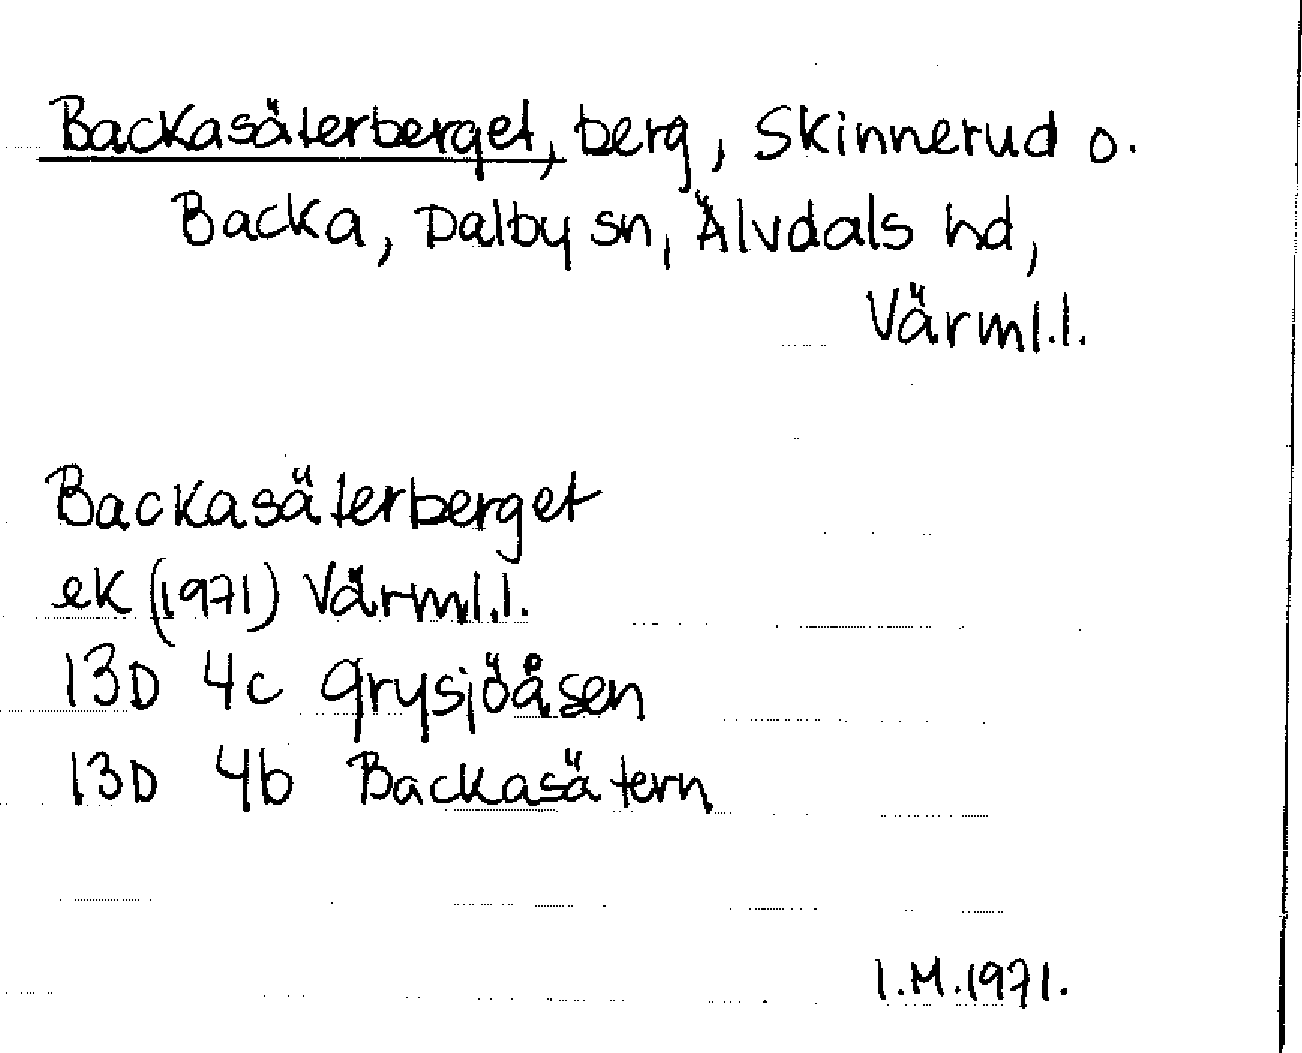 Backasäterberget, berg, Skinnerud o.
Backa, Dalby sn, Älvdals hd,
Värml.l.
Backasäterberget
ek (1971) Värml.l.
13D 4c Grysjöåsen
13D 4b Backasätern
I.M.1971.